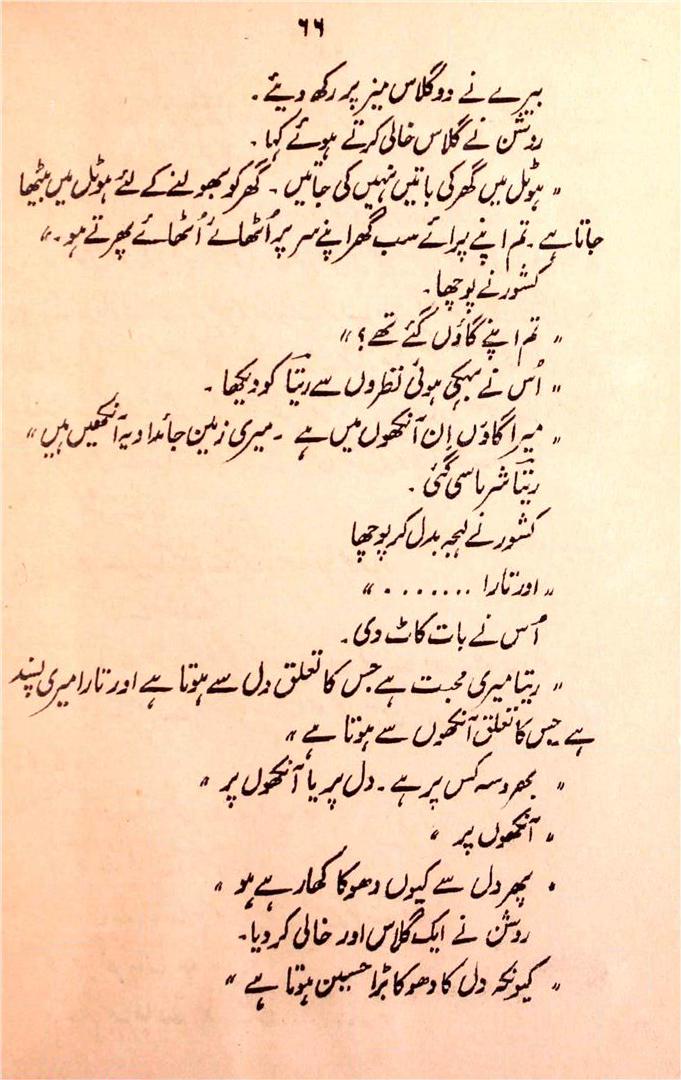 ۶۶
بیرے نے دو گلاس میز پر رکھ دیئے۔
روشن نے گلاس خالی کرتے ہوئے کہا۔
"ہوٹل میں گھر کی باتیں نہیں کی جاتیں۔ گھر کو بھولنے کے لئے ہوٹل میں بیٹھا
جاتا ہے۔ تم اپنے پرائے سب گھر اپنے سر پر اُٹھائے اُٹھائے پھرتے ہو۔"
کشور نے پوچھا۔
"تم اپنے گاؤں گئے تھے؟"
"اُس نے بہکی ہوئی نظروں سے ریتا کو دیکھا۔
"میرا گاؤں اِن آنکھوں میں ہے۔ میری زمین جائداد یہ آنکھیں ہیں"
ریتا شرما سی گئی۔
کشور نے لہجہ بدل کر پوچھا
"اور تارا ........"
اُس نے بات کاٹ دی۔
"ریتا میری محبت ہے جس کا تعلق دل سے ہوتا ہے اور تارا میری پسند
ہے جس کا تعلق آنکھوں سے ہوتا ہے"
"بھروسہ کس پر ہے۔ دل پر یا آنکھوں پر"
"آنکھوں پر"
"پھر دل سے کیوں دھوکا کھا رہے ہو"
روشن نے ایک گلاس اور خالی کر دیا۔
"کیونکہ دل کا دھوکا بڑا حسین ہوتا ہے"